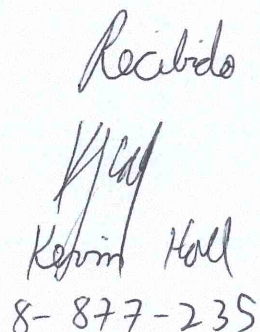 Recibido
Kevin Hall
8-877-235